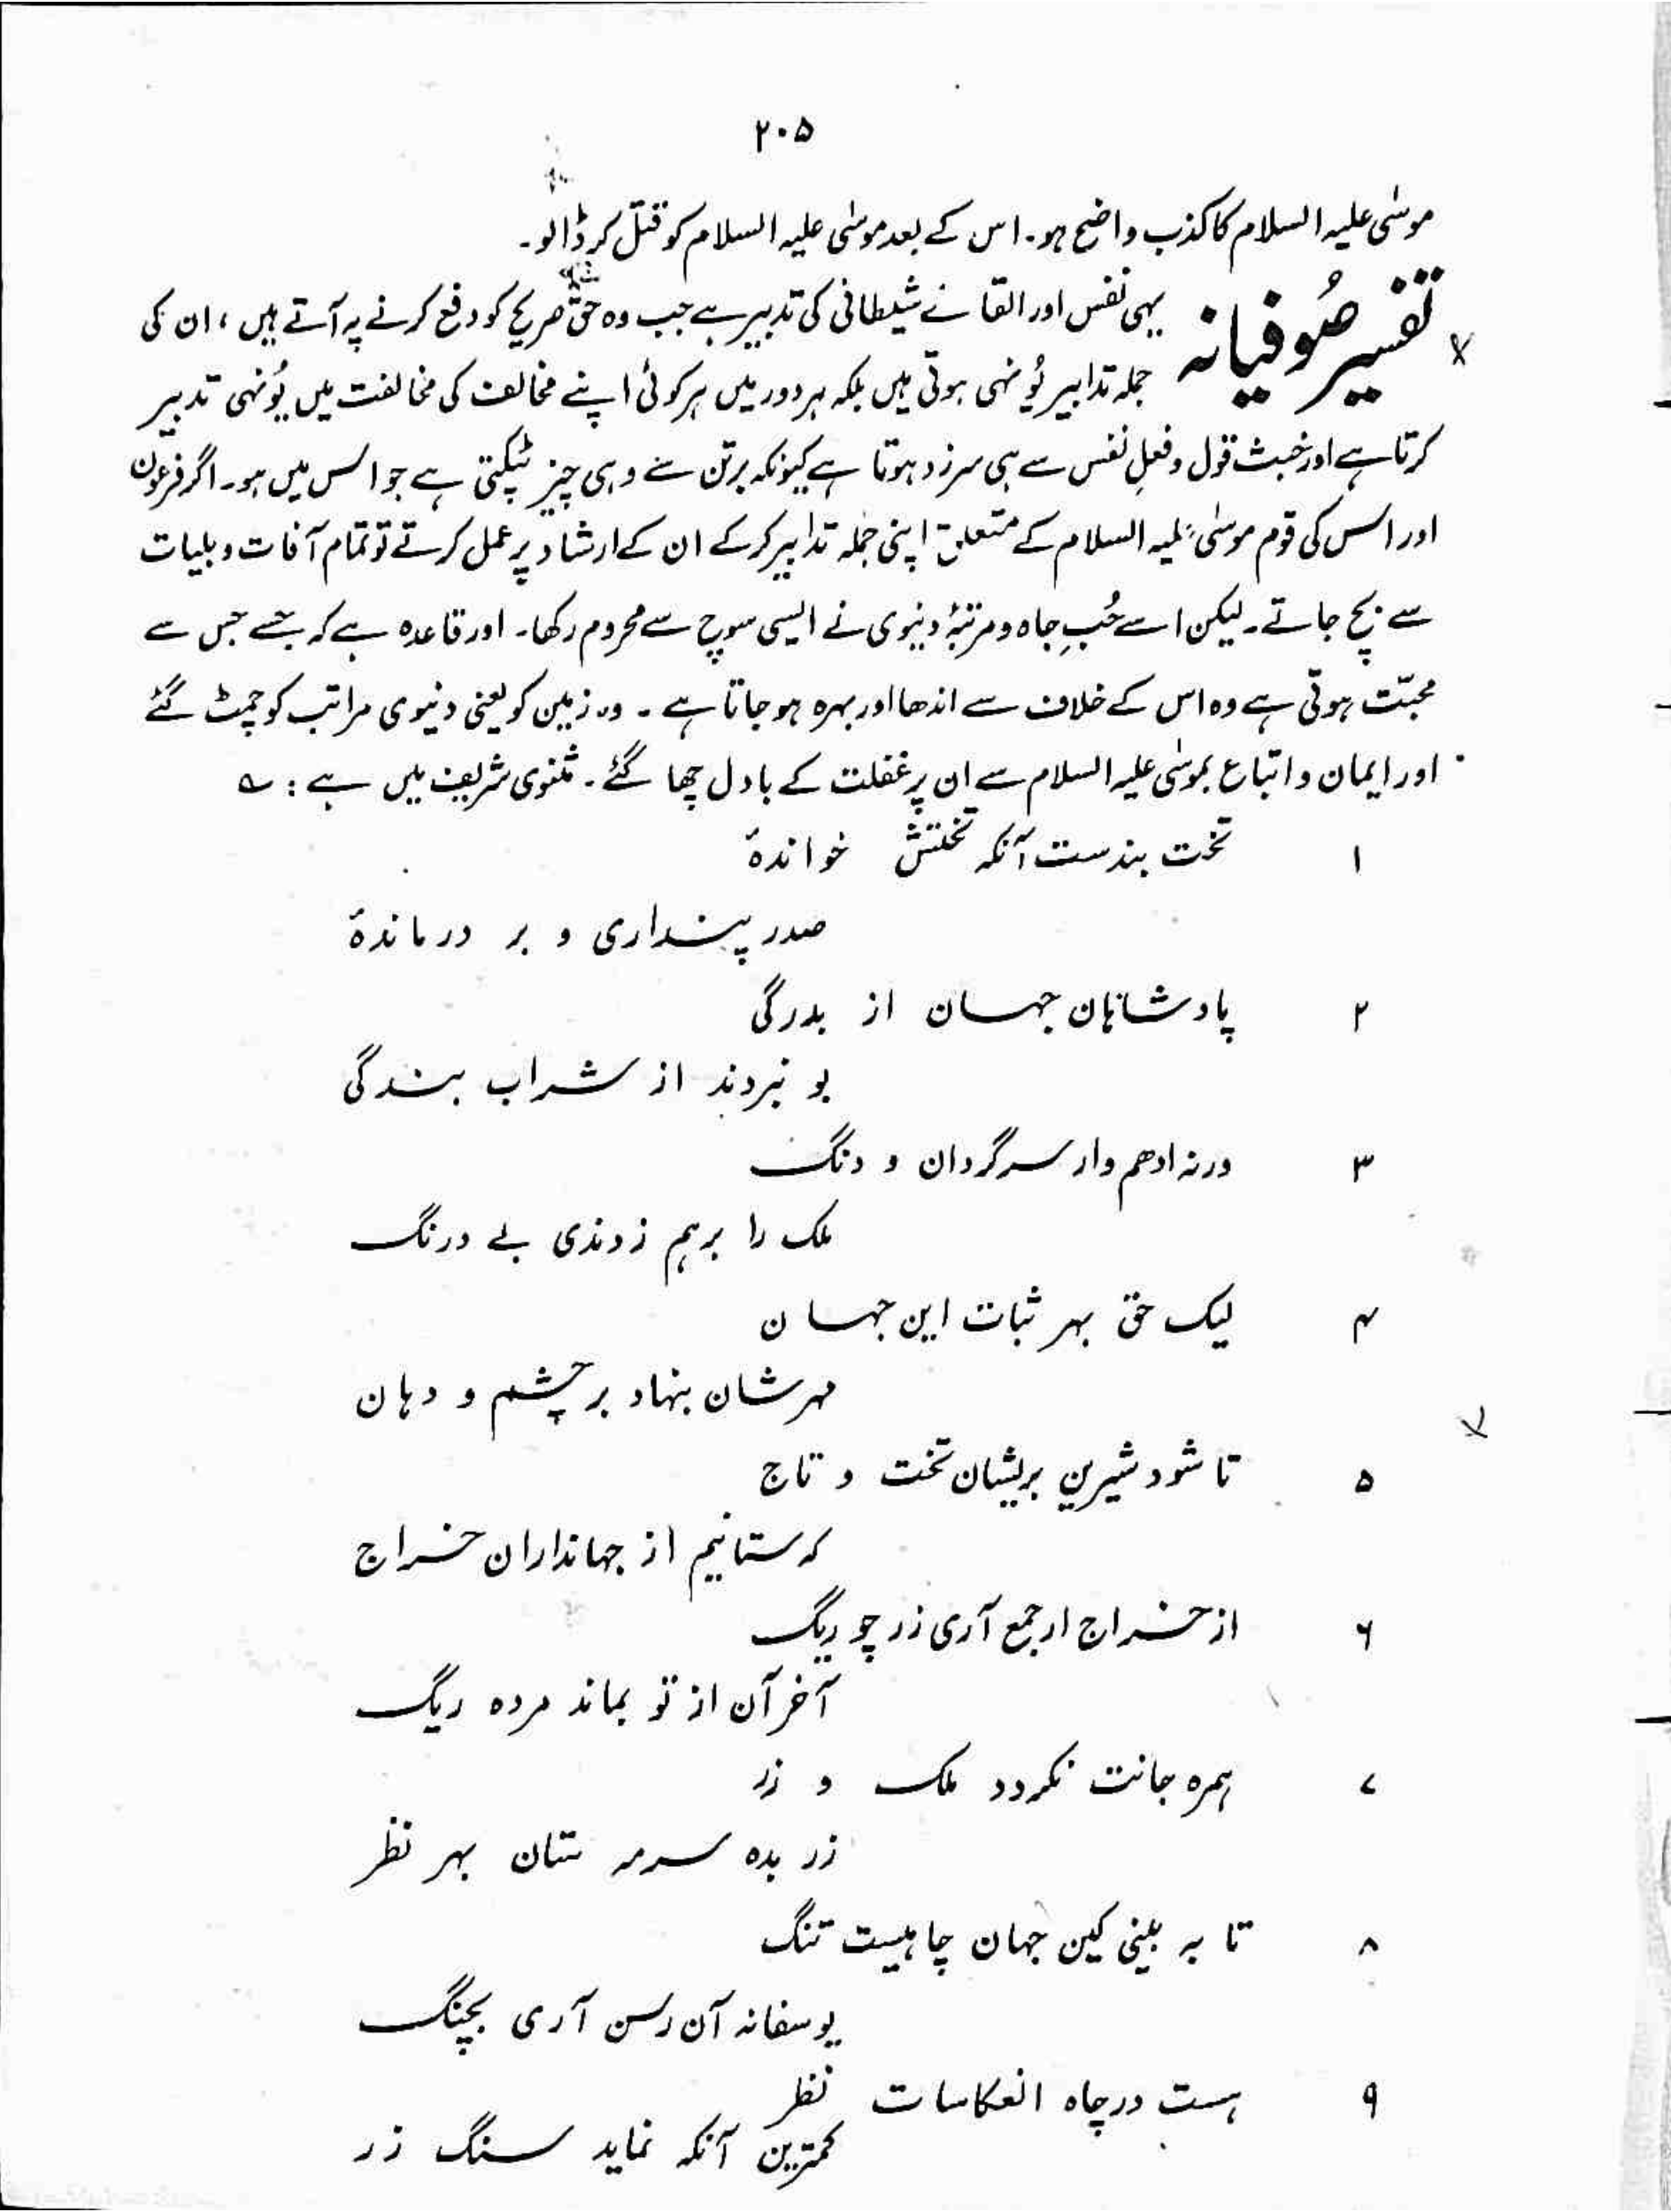 ۲۰۵
موسٰی علیہ السلام کا کذب واضح ہو۔ اس کے بعد موسٰی علیہ السلام کو قتل کر ڈالو۔
تفسیر صُوفیانہ
یہی نفس اور القائے شیطانی کی تدبیر ہے جب وہ حق صریح کو دفع کرنے پہ آتے ہیں ، ان کی
جملہ تدابیر یُونہی ہوتی ہیں بلکہ ہر دور میں ہر کوئی اپنے مخالف کی مخالفت میں یُونہی تدبیر
کرتا ہے اور خبث قول و فعلِ نفس سے ہی سرزد ہوتا ہے کیونکہ برتن سے وہی چیز ٹپکتی ہے جو اس میں ہو۔ اگر فرعون
اور اس کی قوم موسٰی علیہ السلام کے متعلق اپنی جملہ تدابیر کرکے ان کے ارشاد پر عمل کرتے تو تمام آفات و بلیات
سے بچ جاتے۔ لیکن اسے حُبِ جاہ و مرتبۂ دنیوی نے ایسی سوچ سے محروم رکھا۔ اور قاعدہ ہے کہ جسے جس سے
محبّت ہوتی ہے وہ اس کے خلاف سے اندھا اور بہرہ ہو جاتا ہے ۔ وہ زمین کو یعنی دنیوی مراتب کو چمٹ گئے
اور ایمان و اتباع بموسٰی علیہ السلام سے ان پر غفلت کے بادل چھا گئے۔ مثنوی شریف میں ہے : ؎
۱ تخت بندست آنکہ تختش خواندۂ
صدر پنداری و بر در ماندۂ
۲ پادشاہان جہان از بدرگی
بو نبردند از شراب بندگی
۳ ورنہ ادھم وار سرگردان و دنگ
ملک را برہم زدندی بے درنگ
۴ لیک حق بہر ثبات این جہان
مہر شان بنہاد بر چشم و دہان
۵ تا شود شیرین بریشان تخت و تاج
کہ ستانیم از جہانداران خراج
۶ از خراج ار جمع آری زر چو ریگ
آخر آن از تو بماند مردہ ریگ
۷ ہمرہ جانت نگردد ملک و زر
زر بدہ سرمہ ستان بہر نظر
۸ تا بہ بینی کین جہان چاہیست تنگ
یوسفانہ آن رسن آری بچنگ
۹ ہست در چاہ انعکاسات نظر
کمترین آنکہ نماید سنگ زر